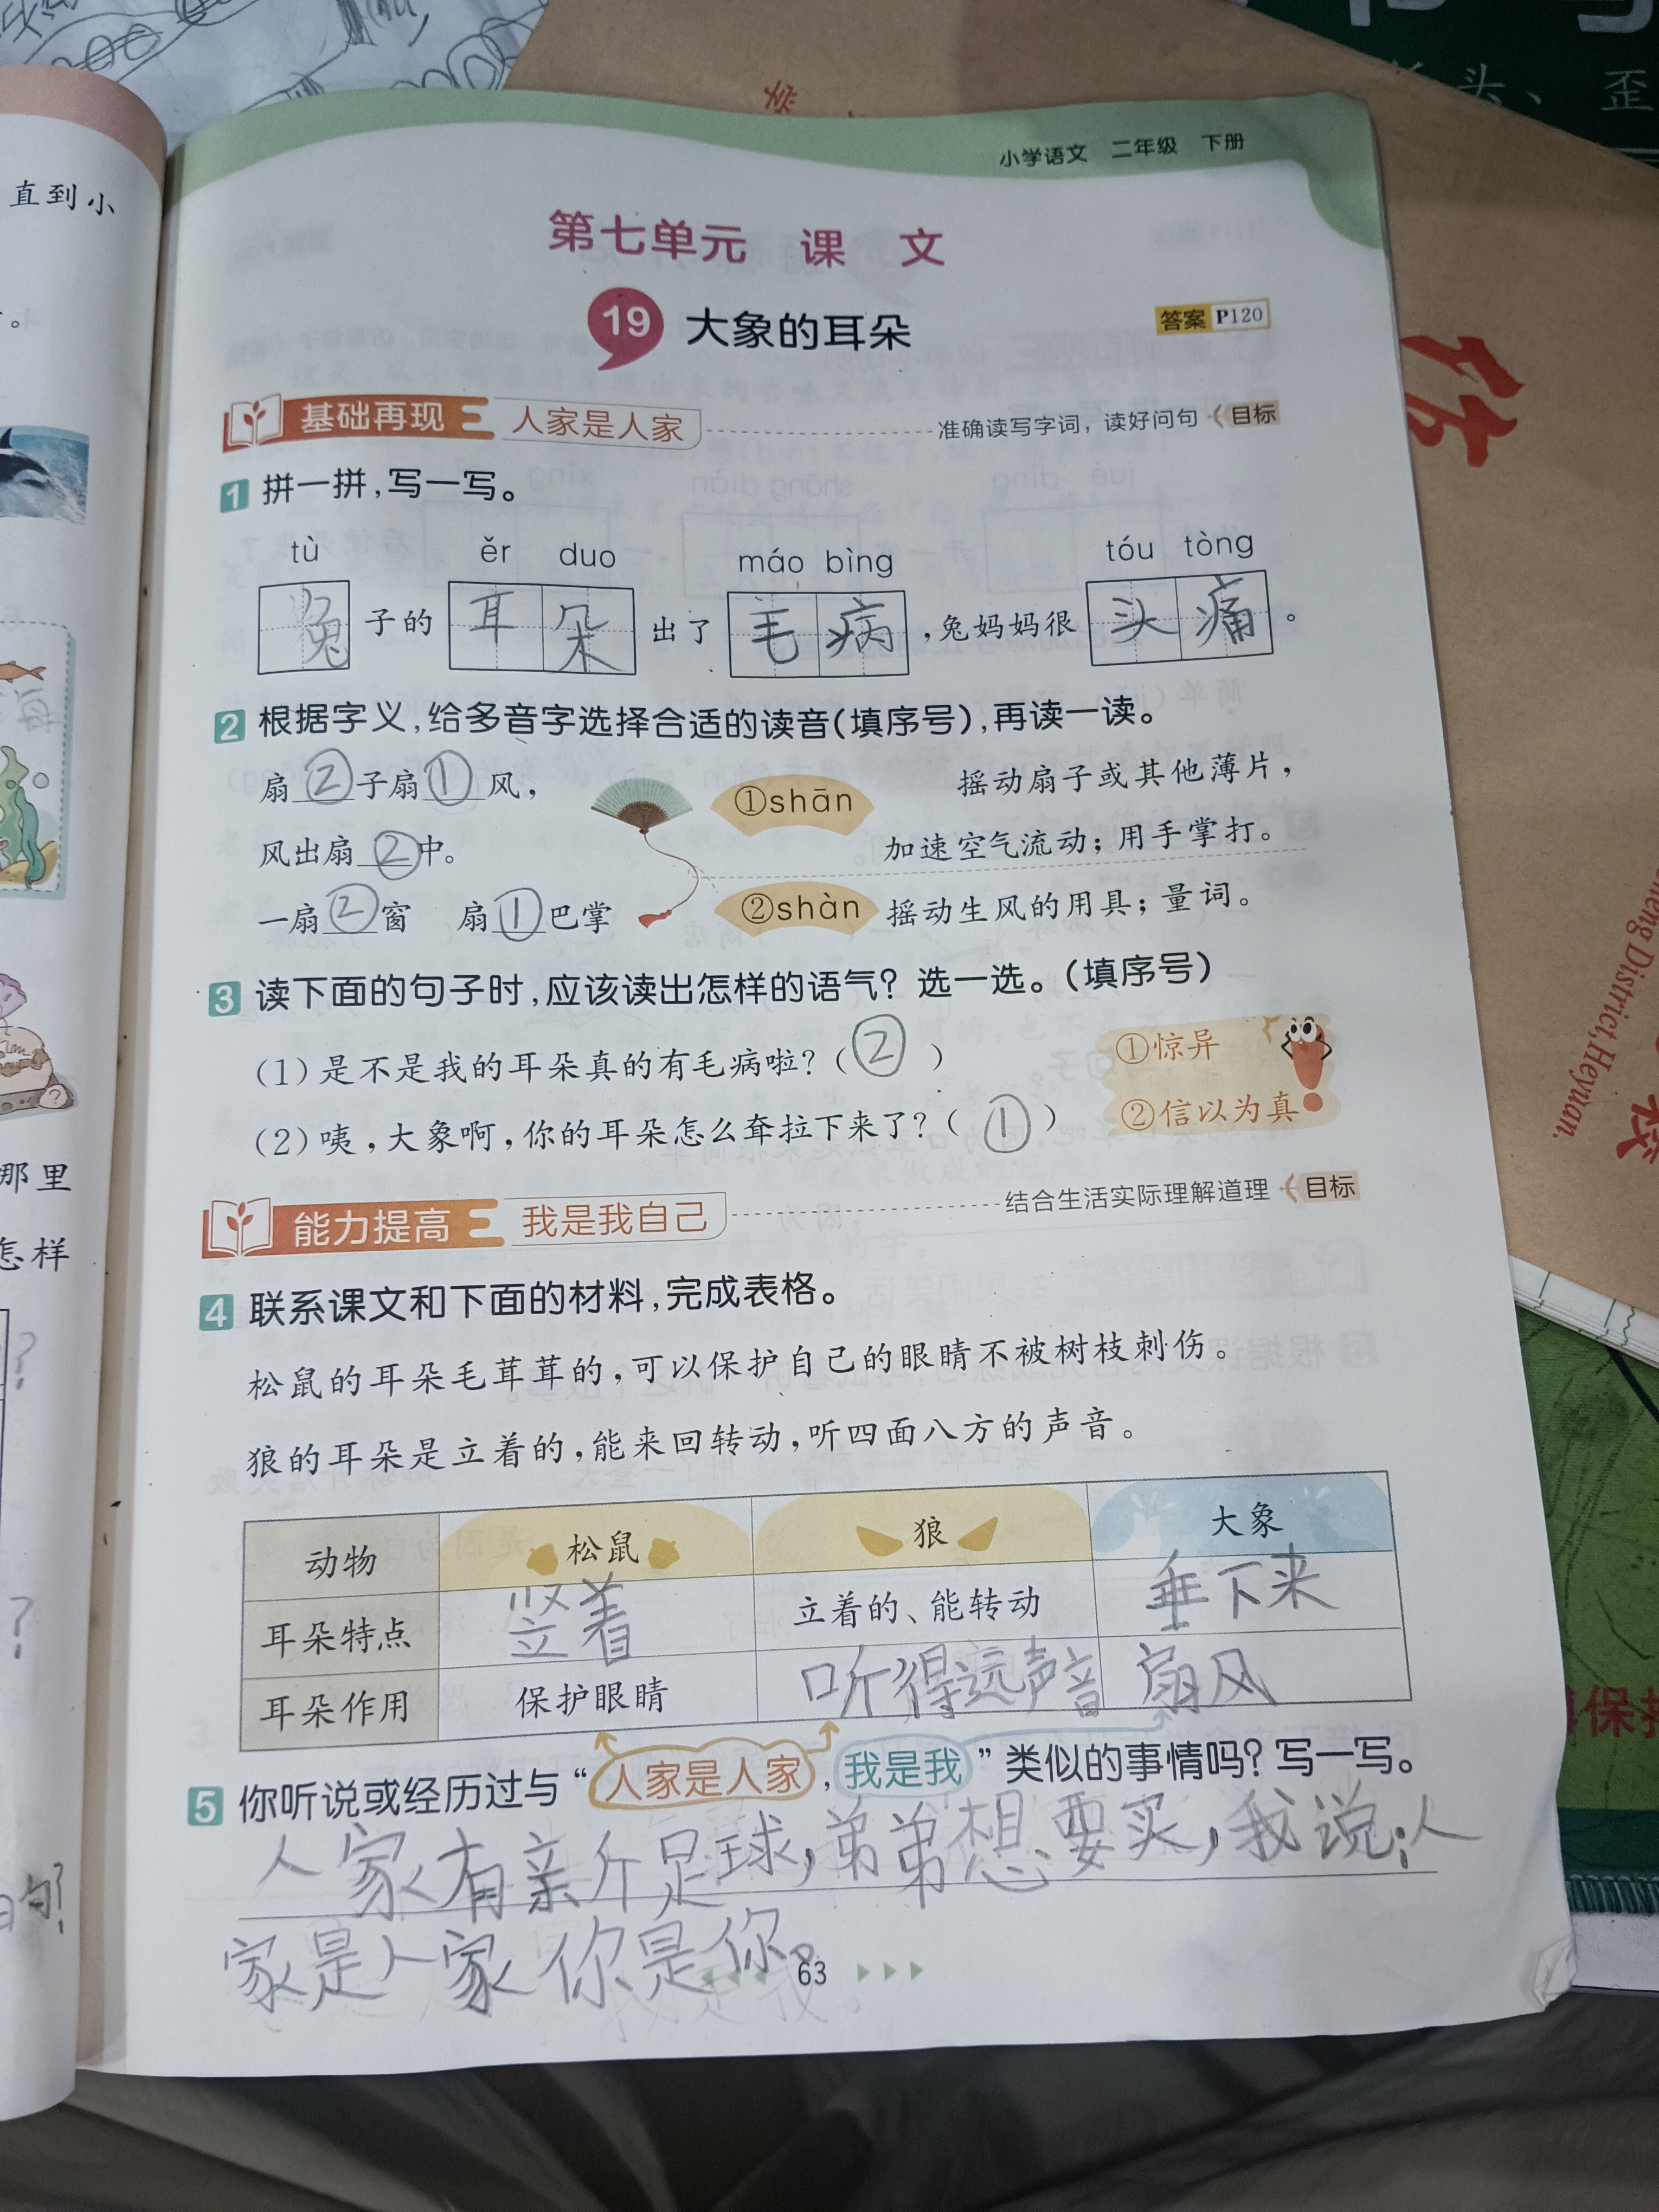 直到小
海
那里
怎样
?
?
小学语文 二年级 下册
第七单元 课 文
19 大象的耳朵
答案 P120
基础再现 人家是人家 准确读写字词，读好问句 目标
1 拼一拼，写一写。
tù ěr duo máo bìng tóu tòng
兔子的耳朵出了毛病，兔妈妈很头痛。
2 根据字义，给多音字选择合适的读音（填序号），再读一读。
扇②子扇①风，
风出扇②中。
一扇②窗 扇①巴掌
①shān 摇动扇子或其他薄片，
加速空气流动；用手掌打。
②shàn 摇动生风的用具；量词。
3 读下面的句子时，应该读出怎样的语气？选一选。（填序号）
（1）是不是我的耳朵真的有毛病啦？（②）
（2）咦，大象啊，你的耳朵怎么耷拉下来了？（①）
①惊异
②信以为真
能力提高 我是我自己 结合生活实际理解道理 目标
4 联系课文和下面的材料，完成表格。
松鼠的耳朵毛茸茸的，可以保护自己的眼睛不被树枝刺伤。
狼的耳朵是立着的，能来回转动，听四面八方的声音。
动物 松鼠 狼 大象
耳朵特点 竖着 立着的、能转动 垂下来
耳朵作用 保护眼睛 听得远声音 扇风
5 你听说或经历过与“人家是人家，我是我”类似的事情吗？写一写。
人家有亲斤足球，弟弟想要买，我说：人
家是人家你是你。
63
头、歪
学
Heng District, Heyuan.
保护